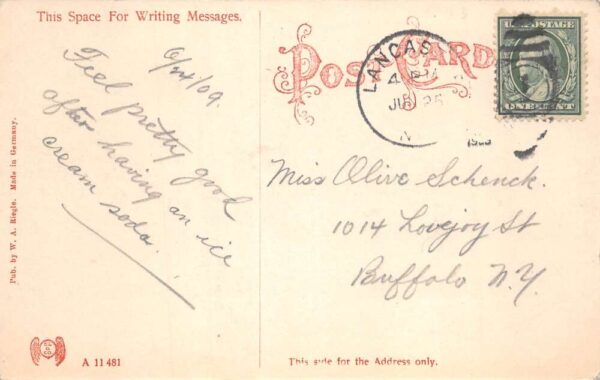 This Space For Writing Messages.
6/24/09.
Feel pretty good
after having an ice
cream soda.
Pub. by W. A. Riegle. Made in Germany.
A 11481
POST CARD
LANCAS
4 PM
JU 25
N
U.S. POSTAGE
ONE CENT
Miss Olive Schenck.
1014 Lovejoy St
Buffalo N.Y.
This side for the Address only.